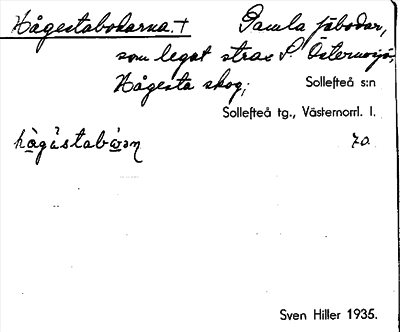 Hågestabodarna.† Gamla fäbodar,
som legat strax S. Östermosjö,
Hågesta skog; Sollefteå s:n
Sollefteå tg., Västernorrl. l.
70.
Sven Hiller 1935.